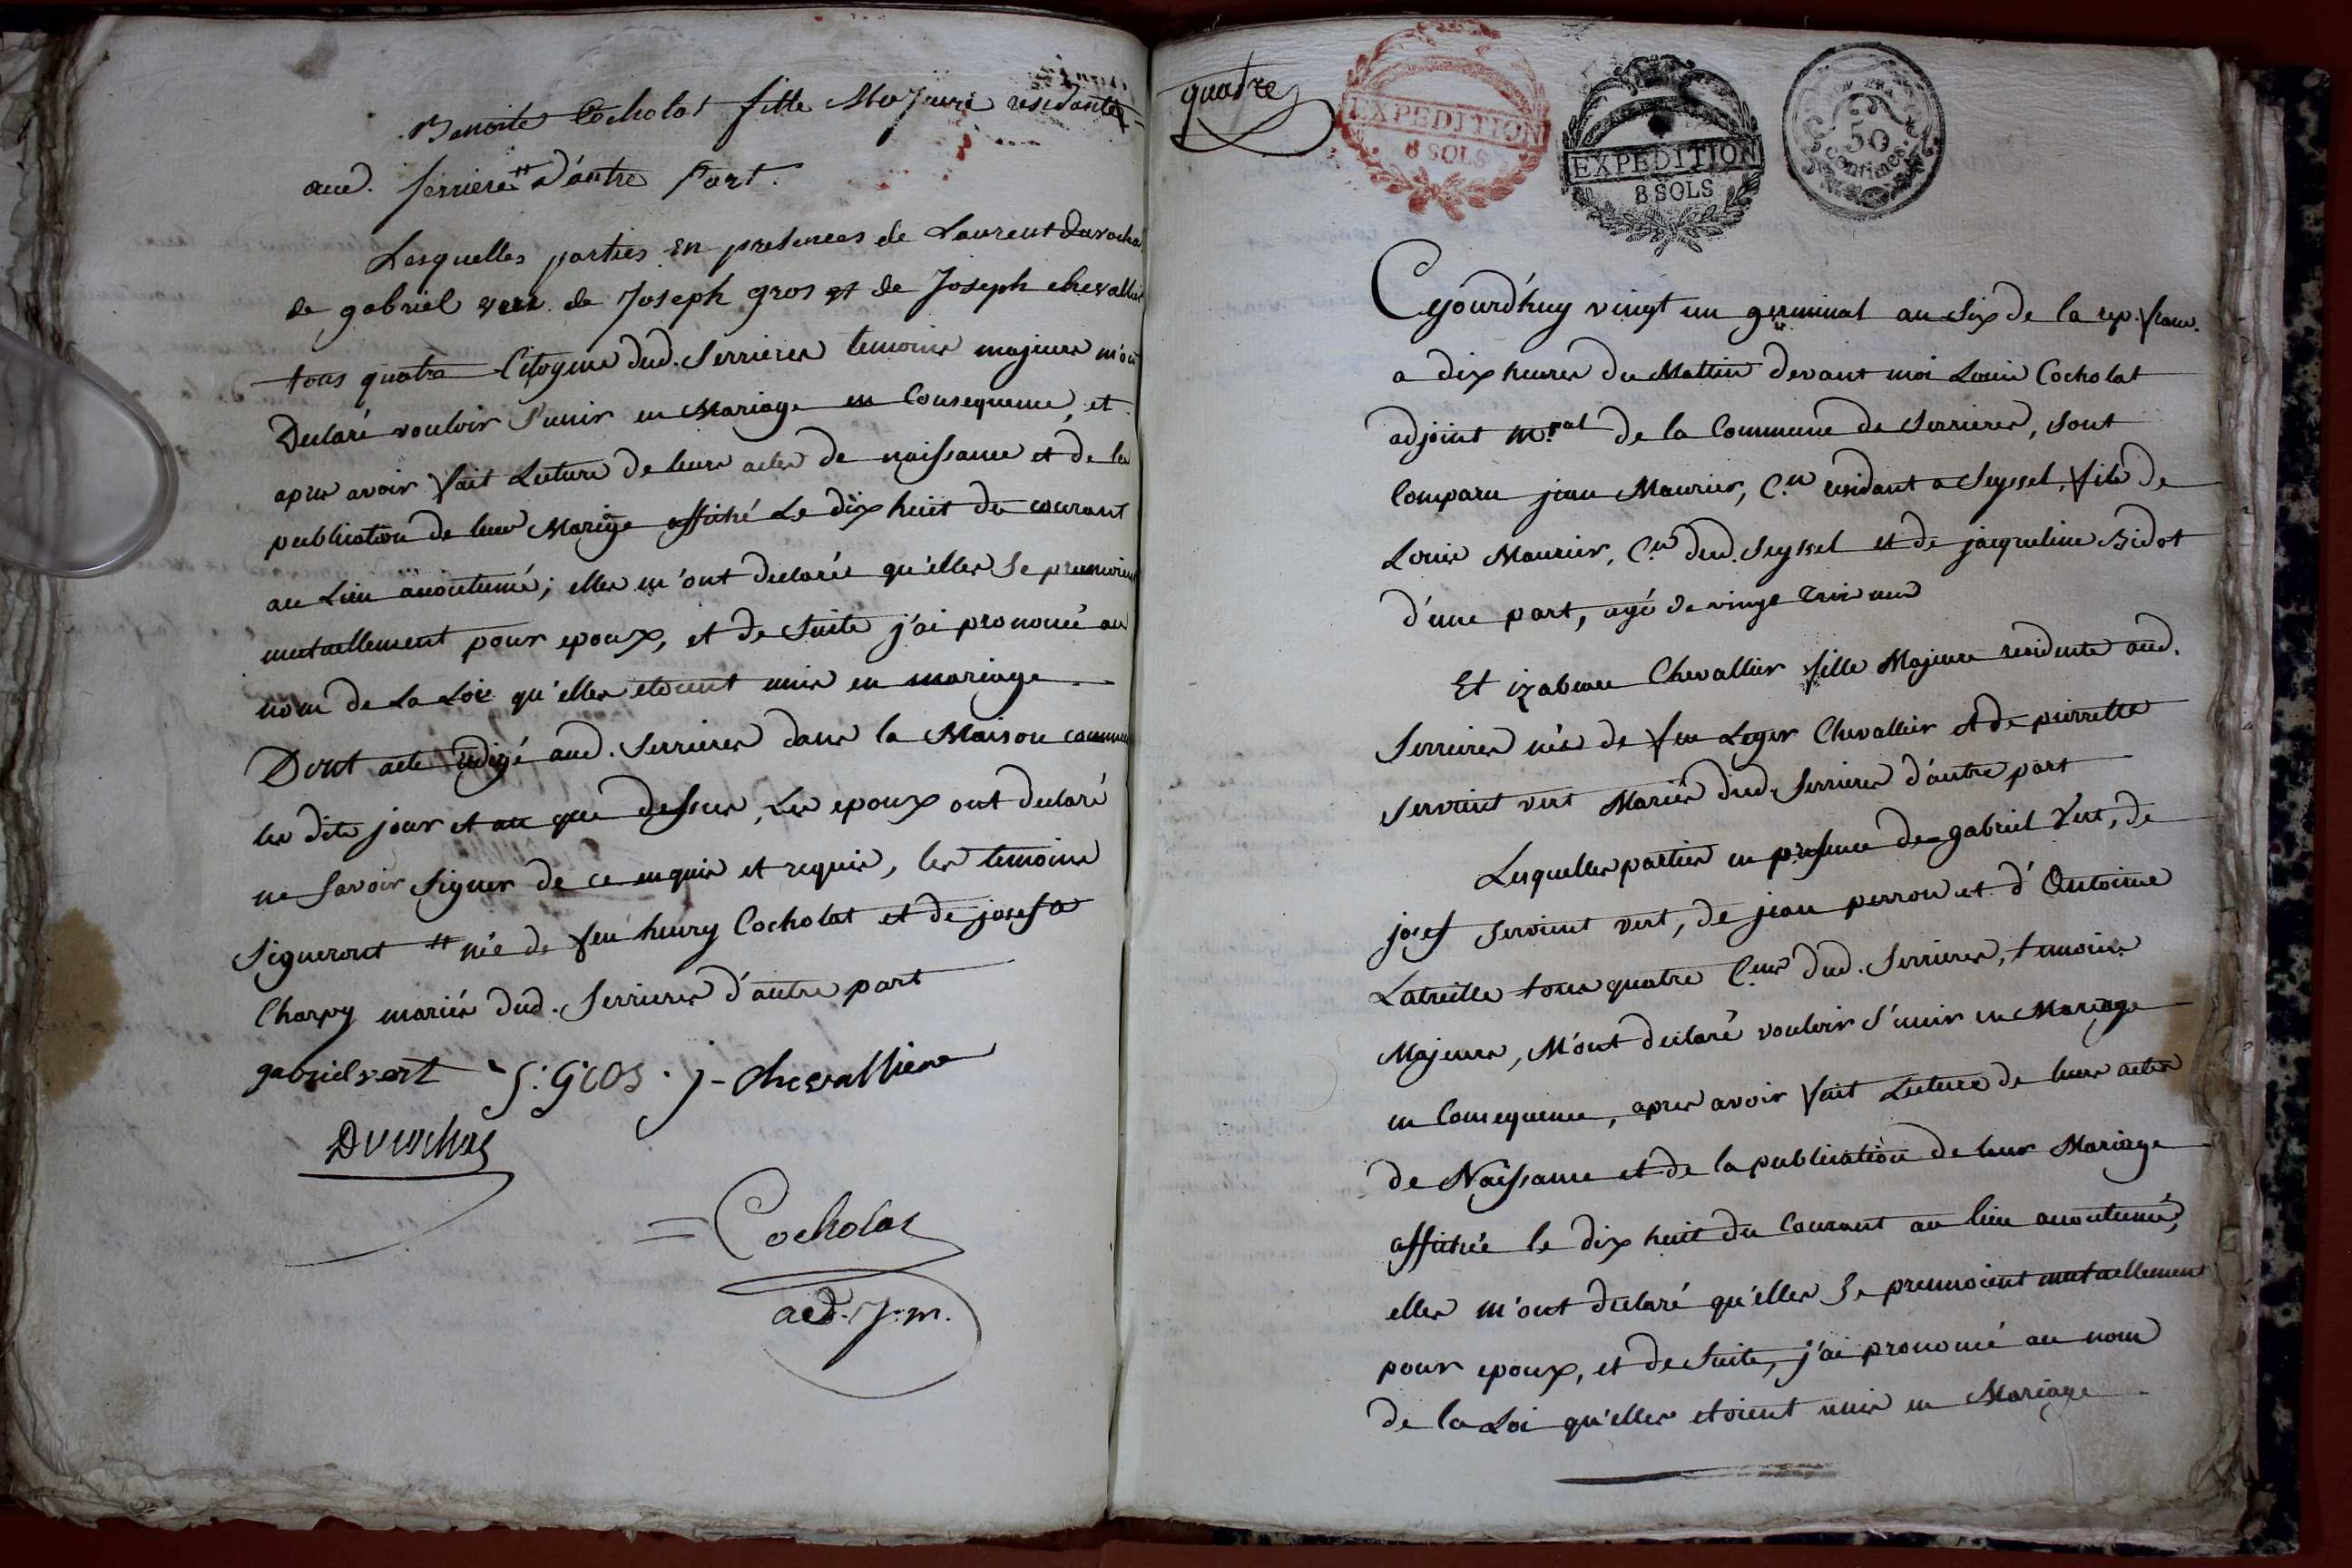 Benoite Cocholat fille Majeure residante
aud. serriere ++ d'autre Part.
Lesquelles parties en presences de Laurent Durochat
de gabriel vert de Joseph gros et de Joseph chevallier
tous quatre Citoyens dud. Serrieres temoins majeurs m'ont
Declaré vouloir s'unir en Mariage en Consequence, et
apres avoir fait Lecture de leurs actes de naissance et de la
publication de leur Mariage affiché Le dix huit du courant
au Lieu acoutumé; elles m'ont declarée qu'elles se prennoient
mutuellement pour epoux, et de suite j'ai prononcé au
nom de La Loi qu'elles etoient unis en mariage
Dont acte redigé aud. Serrieres dans la Maison commune
les dits jour et an que dessus, Les epoux ont declaré
ne savoir signer de ce enquis et requis, les temoins
signeront ++ née de feu henry Cocholat et de josefa
Charvy mariés dud. Serrieres d'autre part
gabriel vert J: GROS . j - chevallier
Durochat
= Cocholat
adj. m.
quatre
EXPEDITION
8 SOLS
EXPEDITION
8 SOLS
50
centimes
Cejourd'huy vingt un germinal an Six de la rep. franc.
a dix heures du Mattin devant moi Louis Cocholat
adjoint m.pal de la Commune de Serrieres, sont
Comparu jean Maurier, C.en residant a Seyssel, fils de
Louis Maurier, C.en dud. Seyssel et de jacqueline Bidot
d'une part, agé de vingt trois ans
Et izabeau Chevallier fille Majeure residente aud.
Serrieres née de feu Leger Chevallier et de pierrette
servient vert Mariés dud. Serrieres d'autre part
Lesquelles parties en presence de gabriel Vert, de
josef servient vert, de jean perron et d'Antoine
Latreille tous quatre C.ens dud. Serrieres, temoins
Majeurs, M'ont declaré vouloir s'unir en Mariage
en Consequence, apres avoir fait Lecture de leurs actes
de Naissance et de la publication de leur Mariage
affichée le dix huit du Courant au lieu acoutumé,
elles m'ont declaré qu'elles se prennoient mutuellement
pour epoux, et de suite, j'ai prononcé au nom
de la Loi qu'elles etoient unis en Mariage